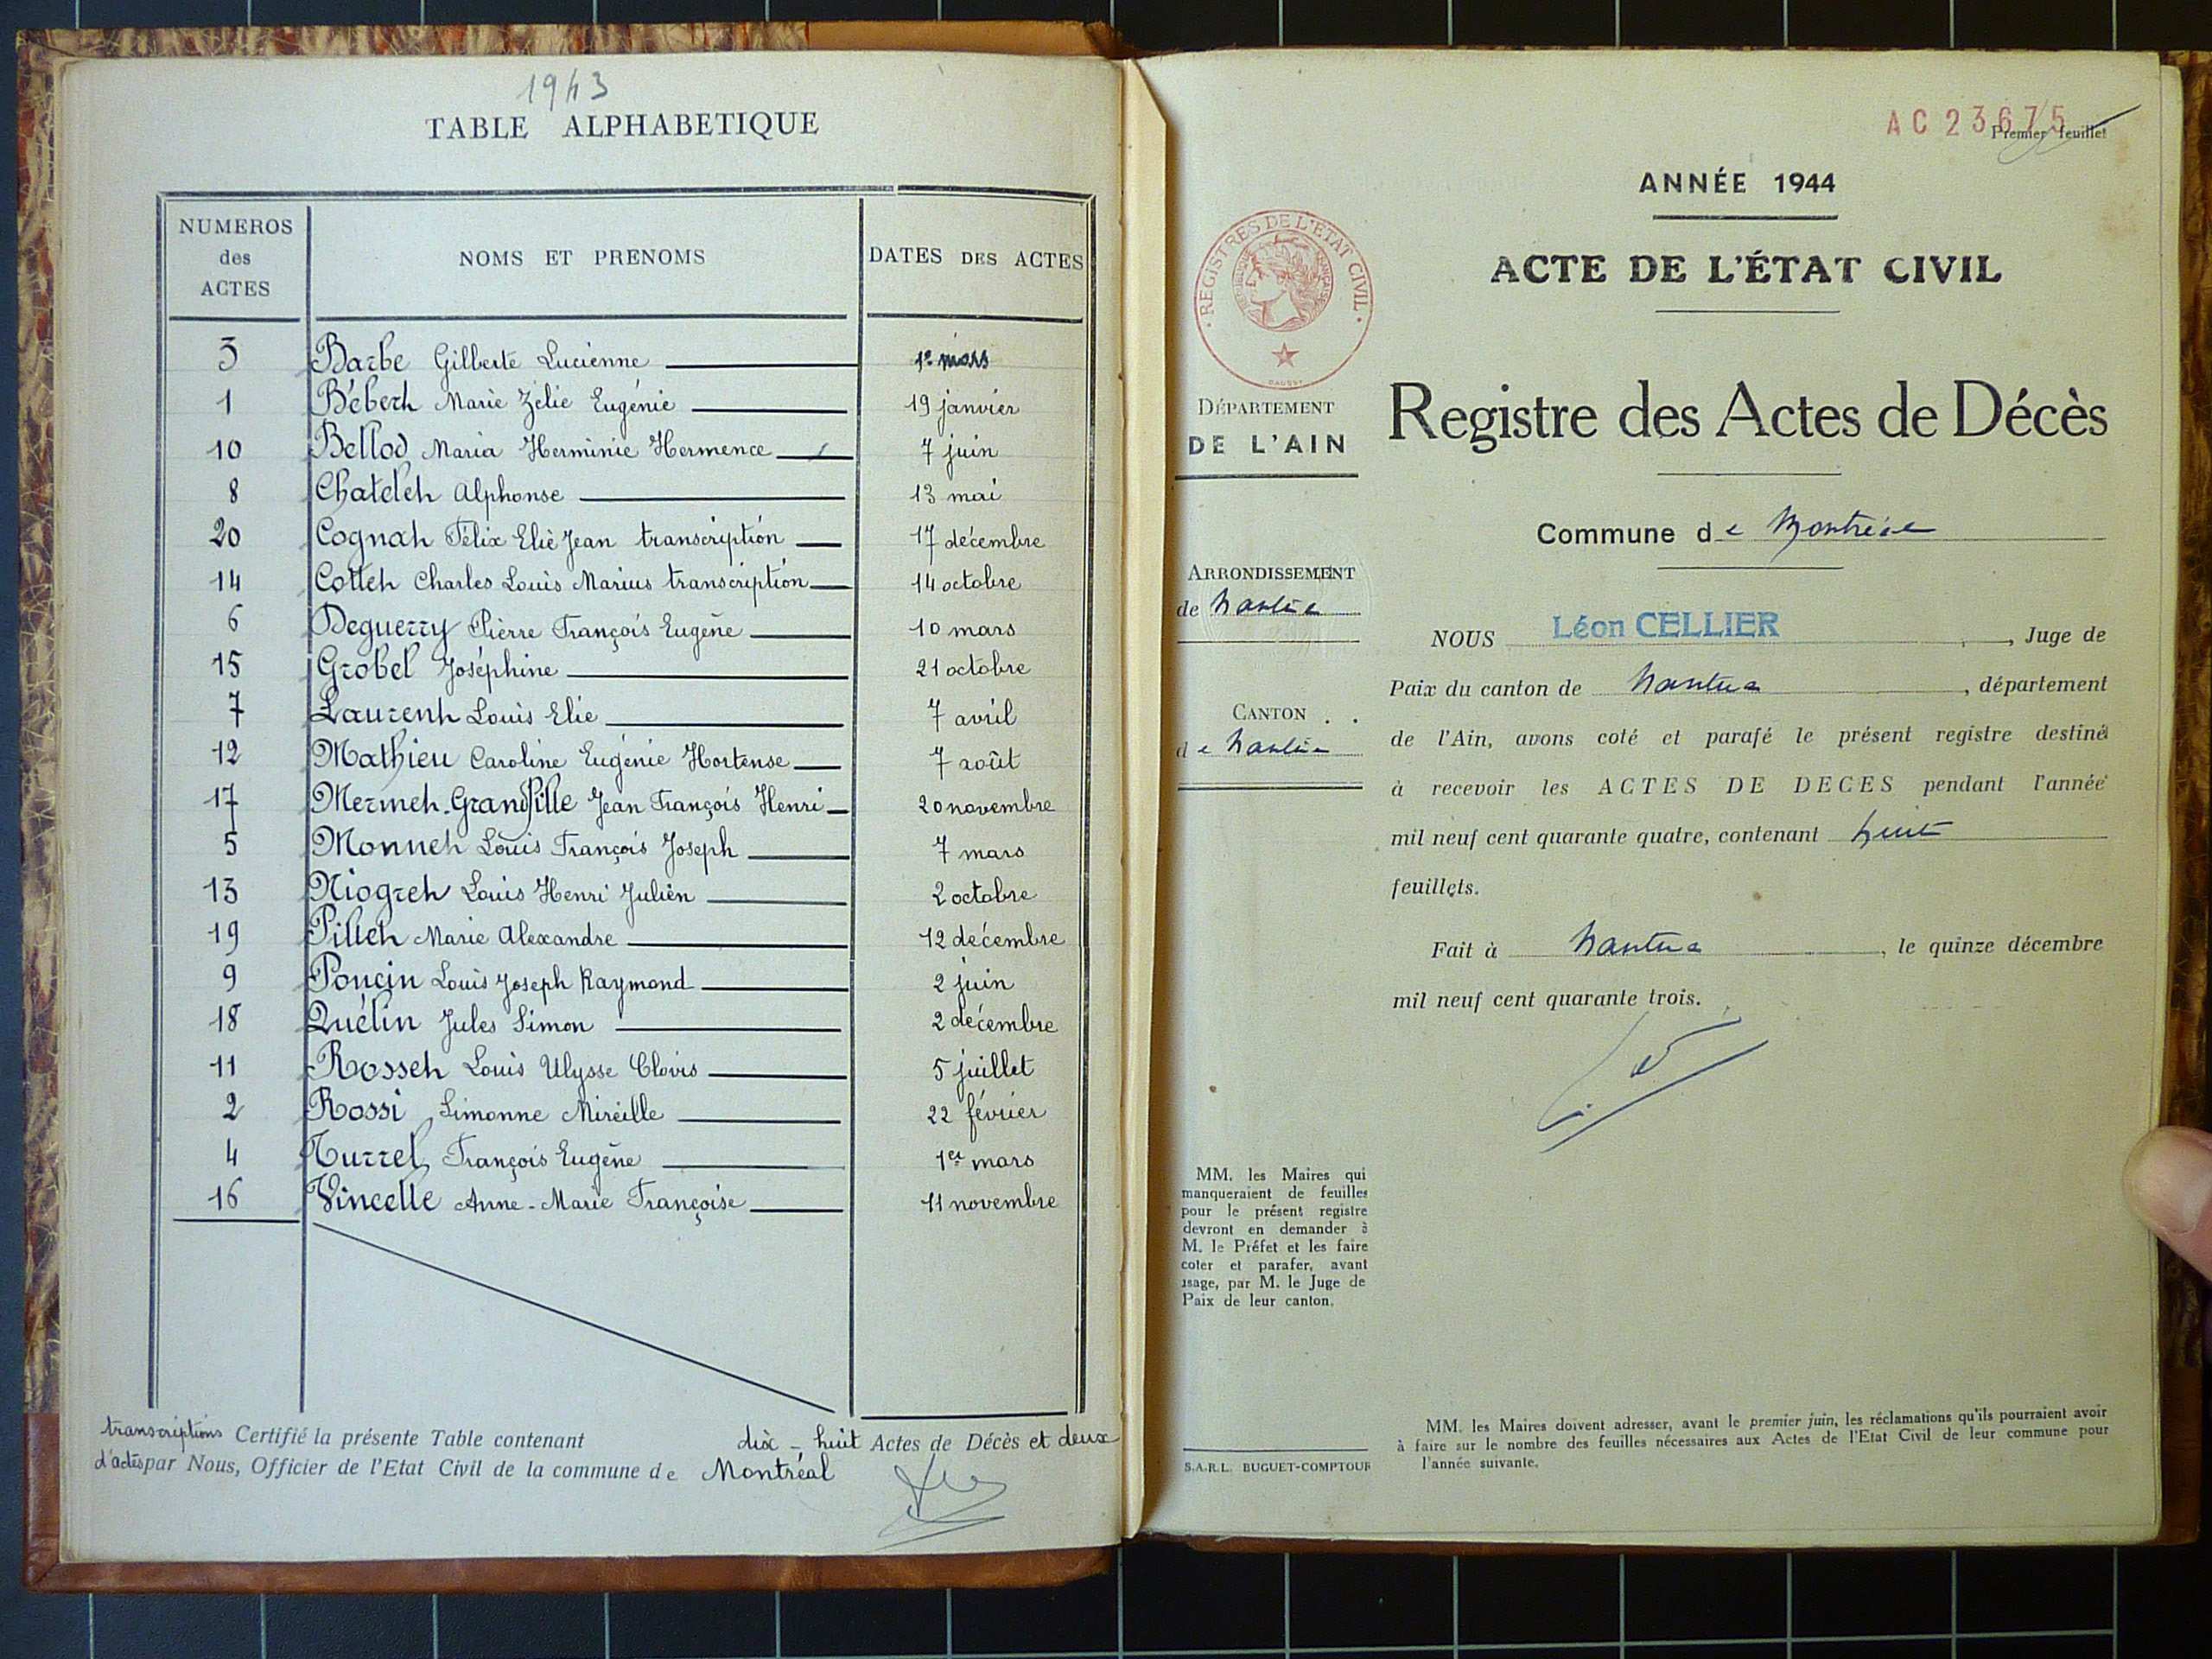 1943
TABLE ALPHABETIQUE
NUMEROS des ACTES
NOMS ET PRENOMS
DATES DES ACTES
3 Barbe Gilberte Lucienne 1er mars
1 Bébert Marie Zélie Eugénie 19 janvier
10 Bellod Maria Herminie Hermence 7 juin
8 Chatelet Alphonse 13 mai
20 Cognat Félix Elie Jean transcription 17 décembre
14 Cottet Charles Louis Marius transcription 14 octobre
6 Deguerry Pierre François Eugène 10 mars
15 Grobel Joséphine 21 octobre
7 Laurent Louis Elie 7 avril
12 Mathieu Caroline Eugénie Hortense 7 août
17 Mermet-Grandfille Jean François Henri 20 novembre
5 Monnet Louis François Joseph 7 mars
13 Niogret Louis Henri Julien 2 octobre
19 Pillet Marie Alexandre 12 décembre
9 Poncin Louis Joseph Raymond 2 juin
18 Quélin Jules Simon 2 décembre
11 Rosset Louis Ulysse Clovis 5 juillet
2 Rossi Simonne Mireille 22 février
4 Turrel François Eugène 1er mars
16 Vincelle Anne-Marie Françoise 11 novembre
transcriptions Certifié la présente Table contenant dix-huit Actes de Décès et deux
d'actes par Nous, Officier de l'Etat Civil de la commune de Montréal
AC 23675
Premier feuillet
ANNÉE 1944
ACTE DE L'ÉTAT CIVIL
· REGISTRES DE L'ETAT CIVIL ·
DÉPARTEMENT
DE L'AIN
Registre des Actes de Décès
Commune de Montréal
ARRONDISSEMENT
de Nantua
CANTON
de Nantua
NOUS Léon CELLIER, Juge de
Paix du canton de Nantua, département
de l'Ain, avons coté et parafé le présent registre destiné
à recevoir les ACTES DE DECES pendant l'année
mil neuf cent quarante quatre, contenant huit
feuillets.
Fait à Nantua, le quinze décembre
mil neuf cent quarante trois.
MM. les Maires qui
manqueraient de feuilles
pour le présent registre
devront en demander à
M. le Préfet et les faire
coter et parafer, avant
usage, par M. le Juge de
Paix de leur canton.
MM. les Maires doivent adresser, avant le premier juin, les réclamations qu'ils pourraient avoir
à faire sur le nombre des feuilles nécessaires aux Actes de l'Etat Civil de leur commune pour
l'année suivante.
S.A.R.L. BUGUET-COMPTOUR